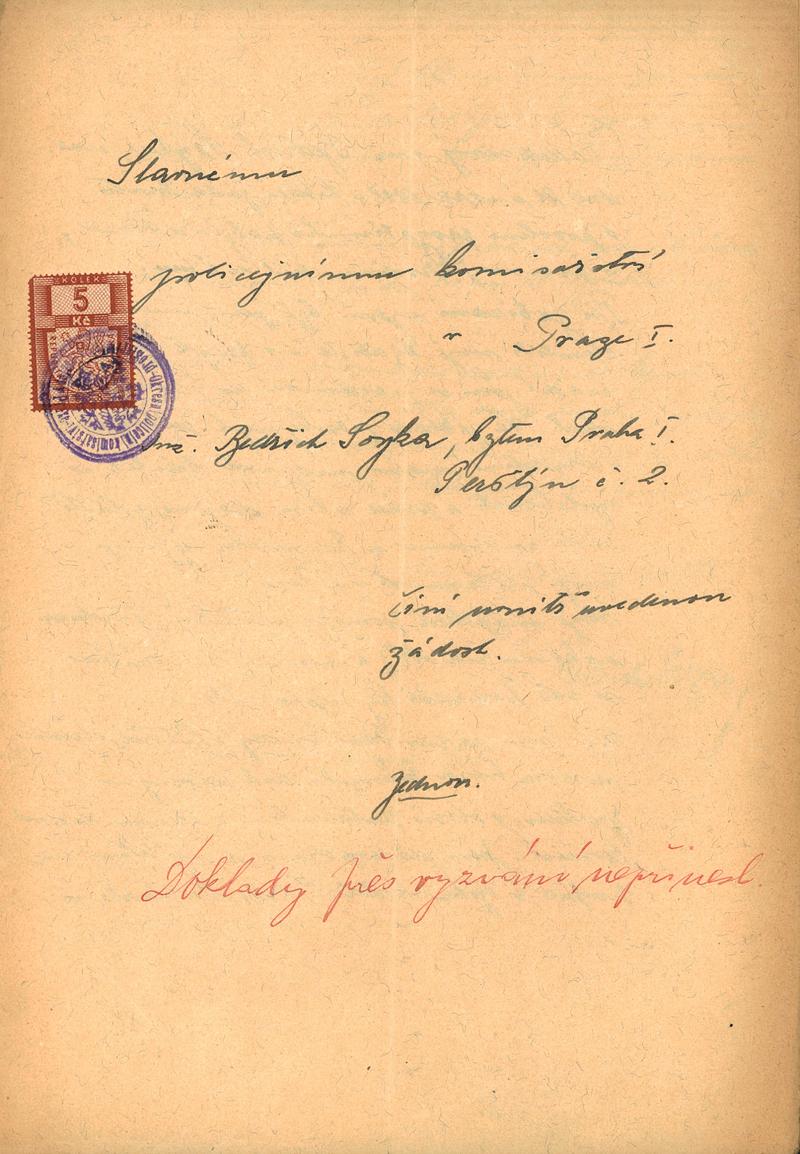 Slavnému
policejnímu komisařství
v Praze I.
KOLEK
5
Kč
Ing. Bedřich Soyka, bytem Praha I.
Perštýn č. 2.
činí uvnitř uvedenou
žádost.
Jednou.
Doklady přes vyzvání nepřinesl.